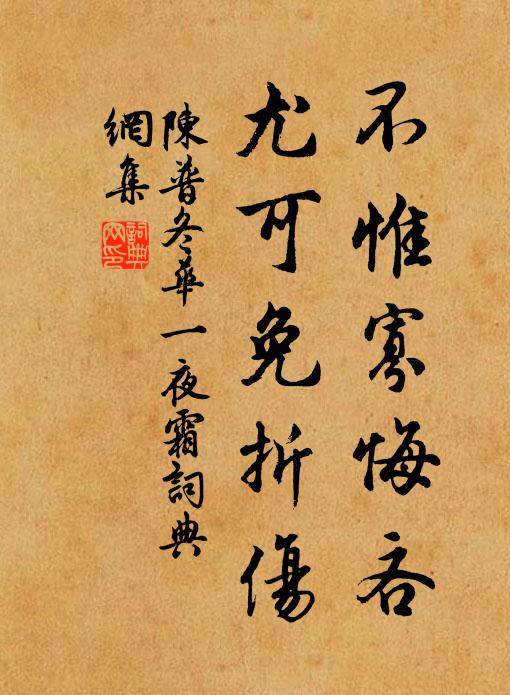 不惟寡悔吝
尤可免折傷
陳普冬華一夜霜詞典
網集
詞典
网印